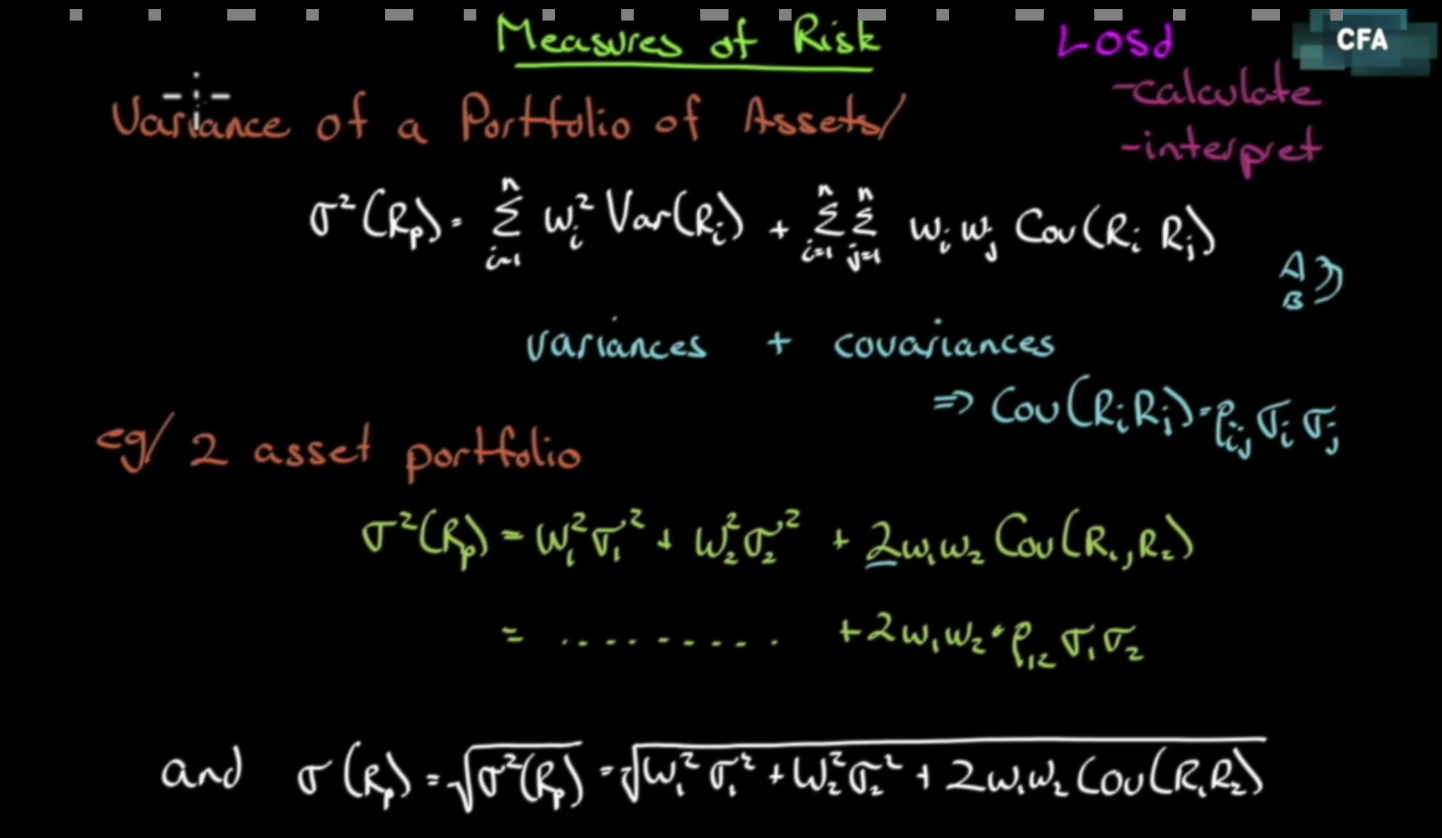 Measures of Risk
LOSd
CFA
-calculate
-interpret
Variance of a Portfolio of Assets/
σ²(Rp) = Σ(i=1 to n) wᵢ² Var(Rᵢ) + Σ(i=1 to n) Σ(j=1 to n) wᵢ wⱼ Cov(Rᵢ Rⱼ)
A
B
variances + covariances
⇒ Cov(Rᵢ Rⱼ) = ρᵢⱼ σᵢ σⱼ
eg/ 2 asset portfolio
σ²(Rp) = W₁² σ₁² + W₂² σ₂² + 2w₁w₂ Cov(R₁, R₂)
= ......... + 2w₁w₂ · ρ₁₂ σ₁ σ₂
and σ(Rp) = √σ²(Rp) = √(W₁² σ₁² + W₂² σ₂² + 2w₁w₂ Cov(R₁R₂))